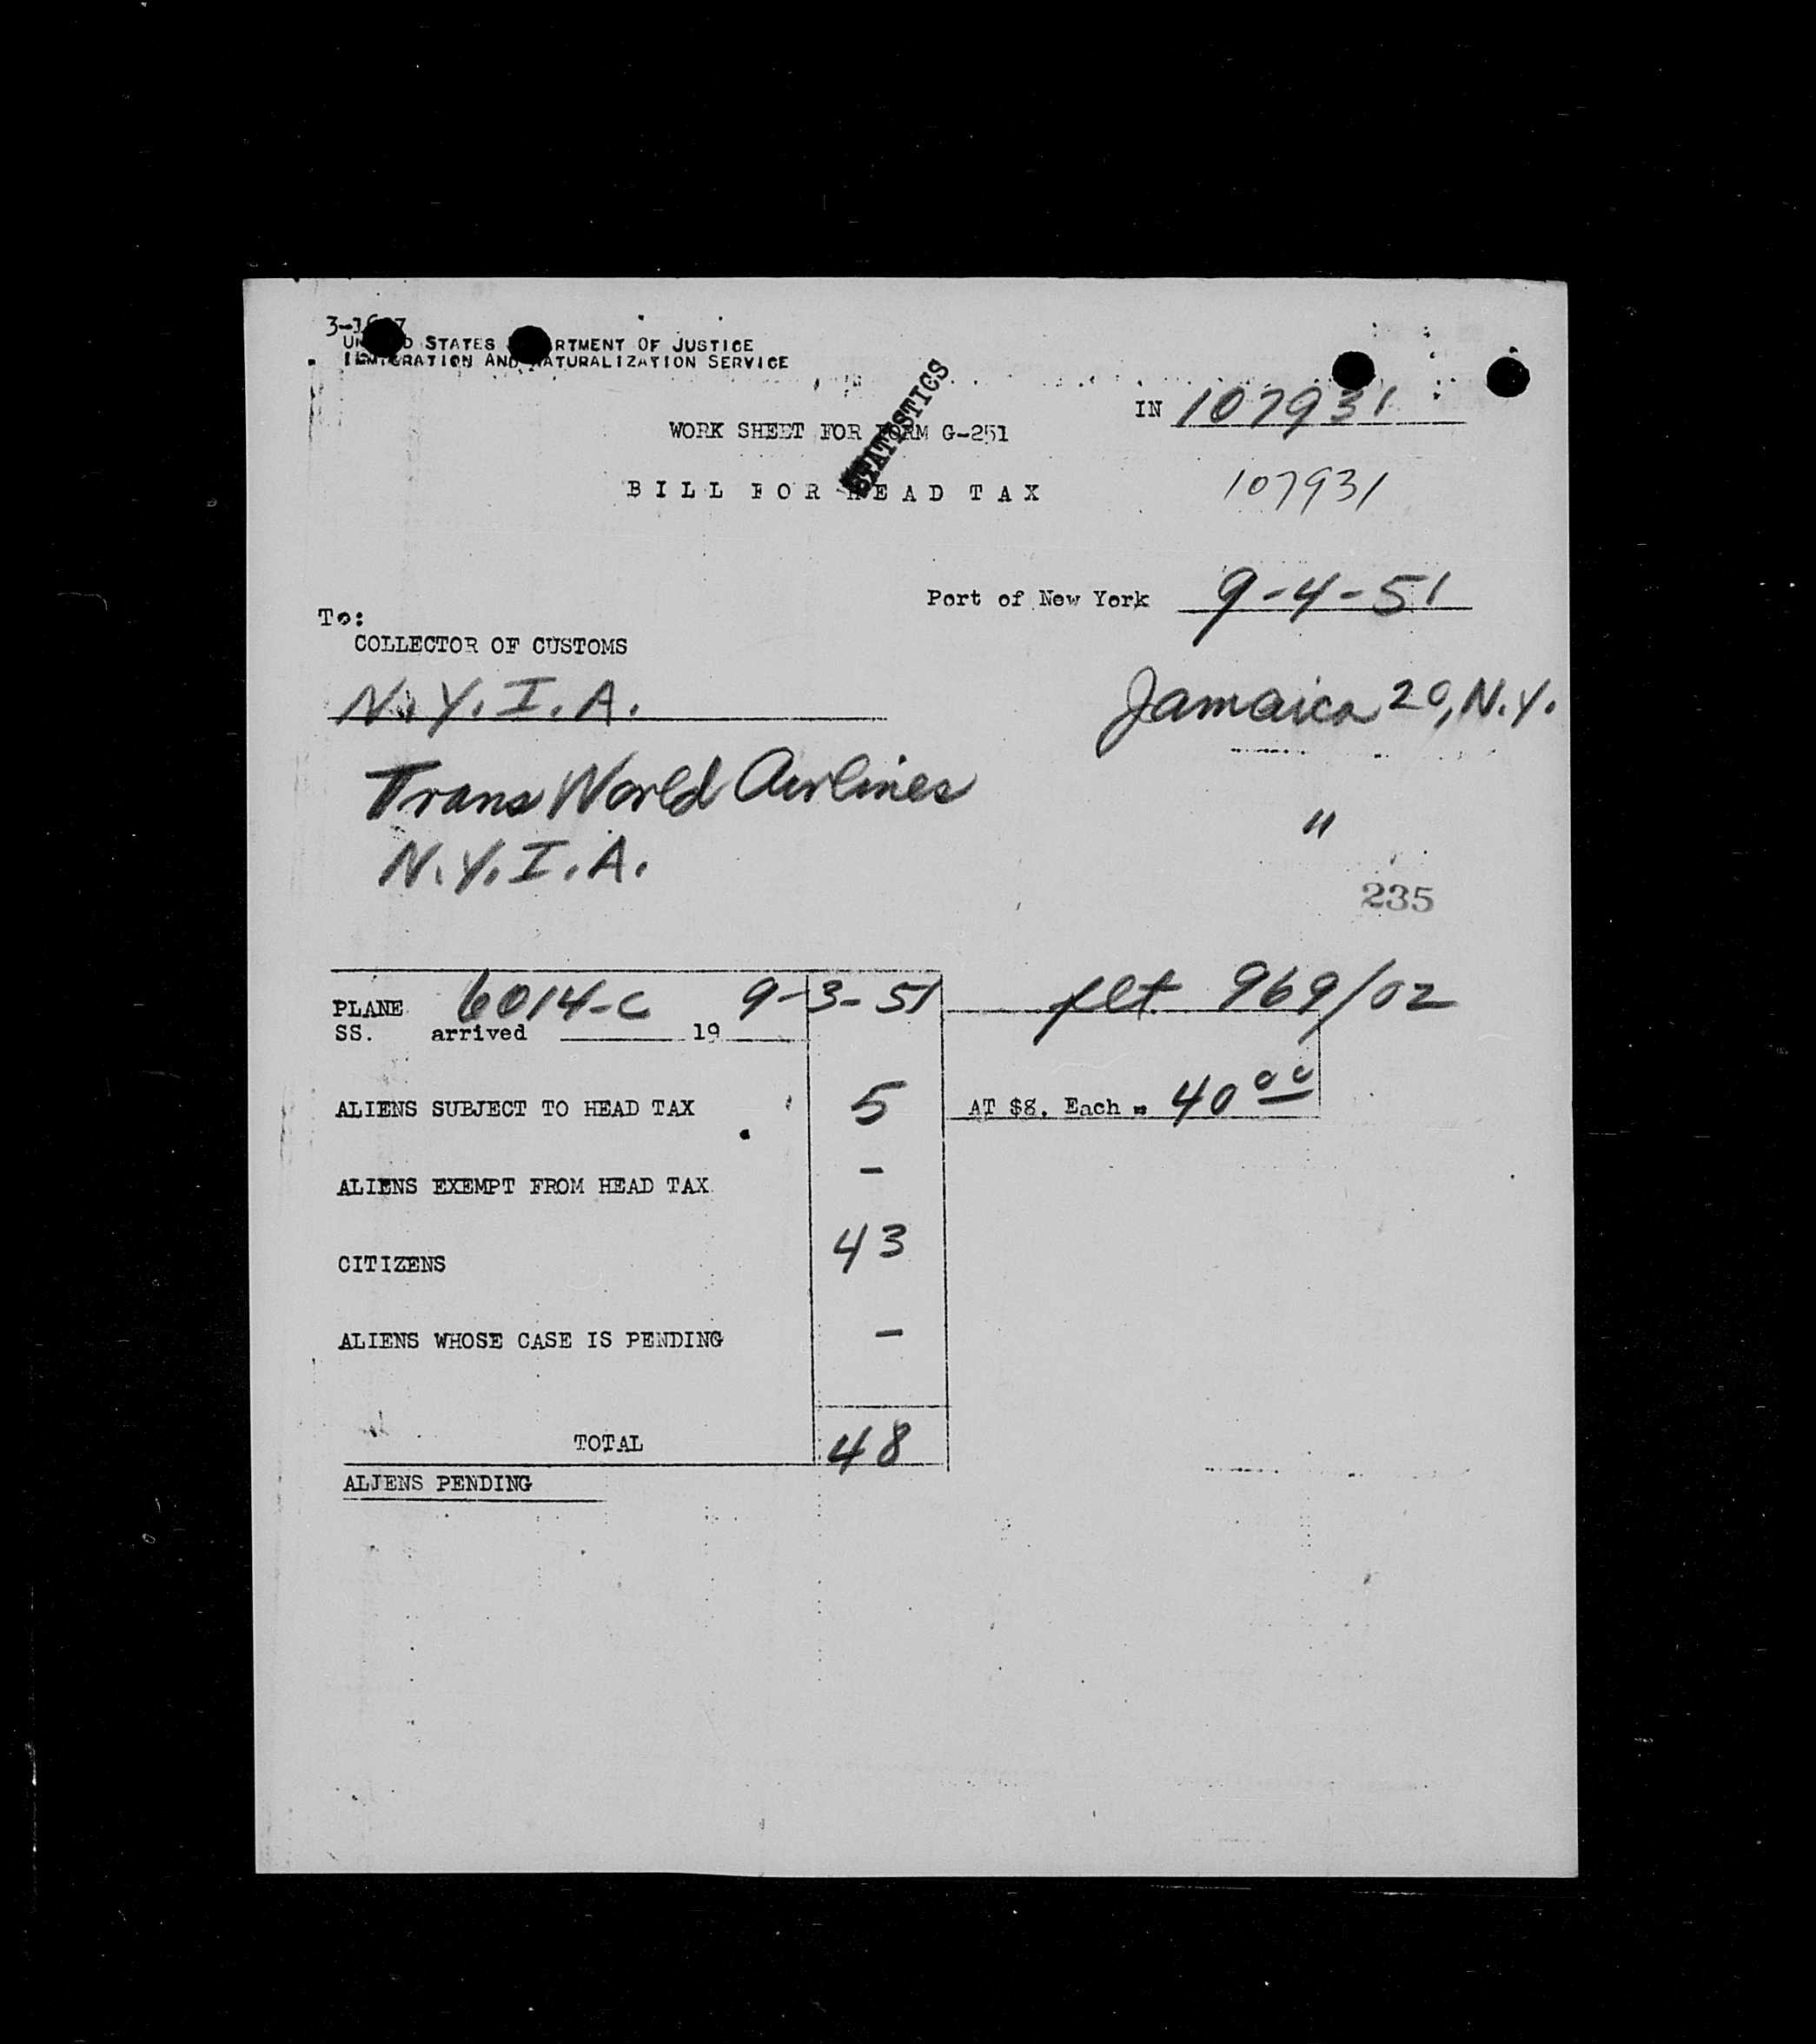 STATES
OF JUSTICE
AND
SERVICE
STATISTICS
IN 107931
WORK SHEET FOR FORM G-251
BILL FOR HEAD TAX
107931
Port of New York 9-4-51
To:
COLLECTOR OF CUSTOMS
N.Y.I.A. Jamaica 20, N.Y.
Trans World Airlines "
N.Y.I.A.
235
PLANE 6014-C 9-3-51 flt 969/02
SS. arrived 19
ALIENS SUBJECT TO HEAD TAX 5 AT $8. Each = 40 00
ALIENS EXEMPT FROM HEAD TAX -
CITIZENS 43
ALIENS WHOSE CASE IS PENDING -
TOTAL 48
ALIENS PENDING